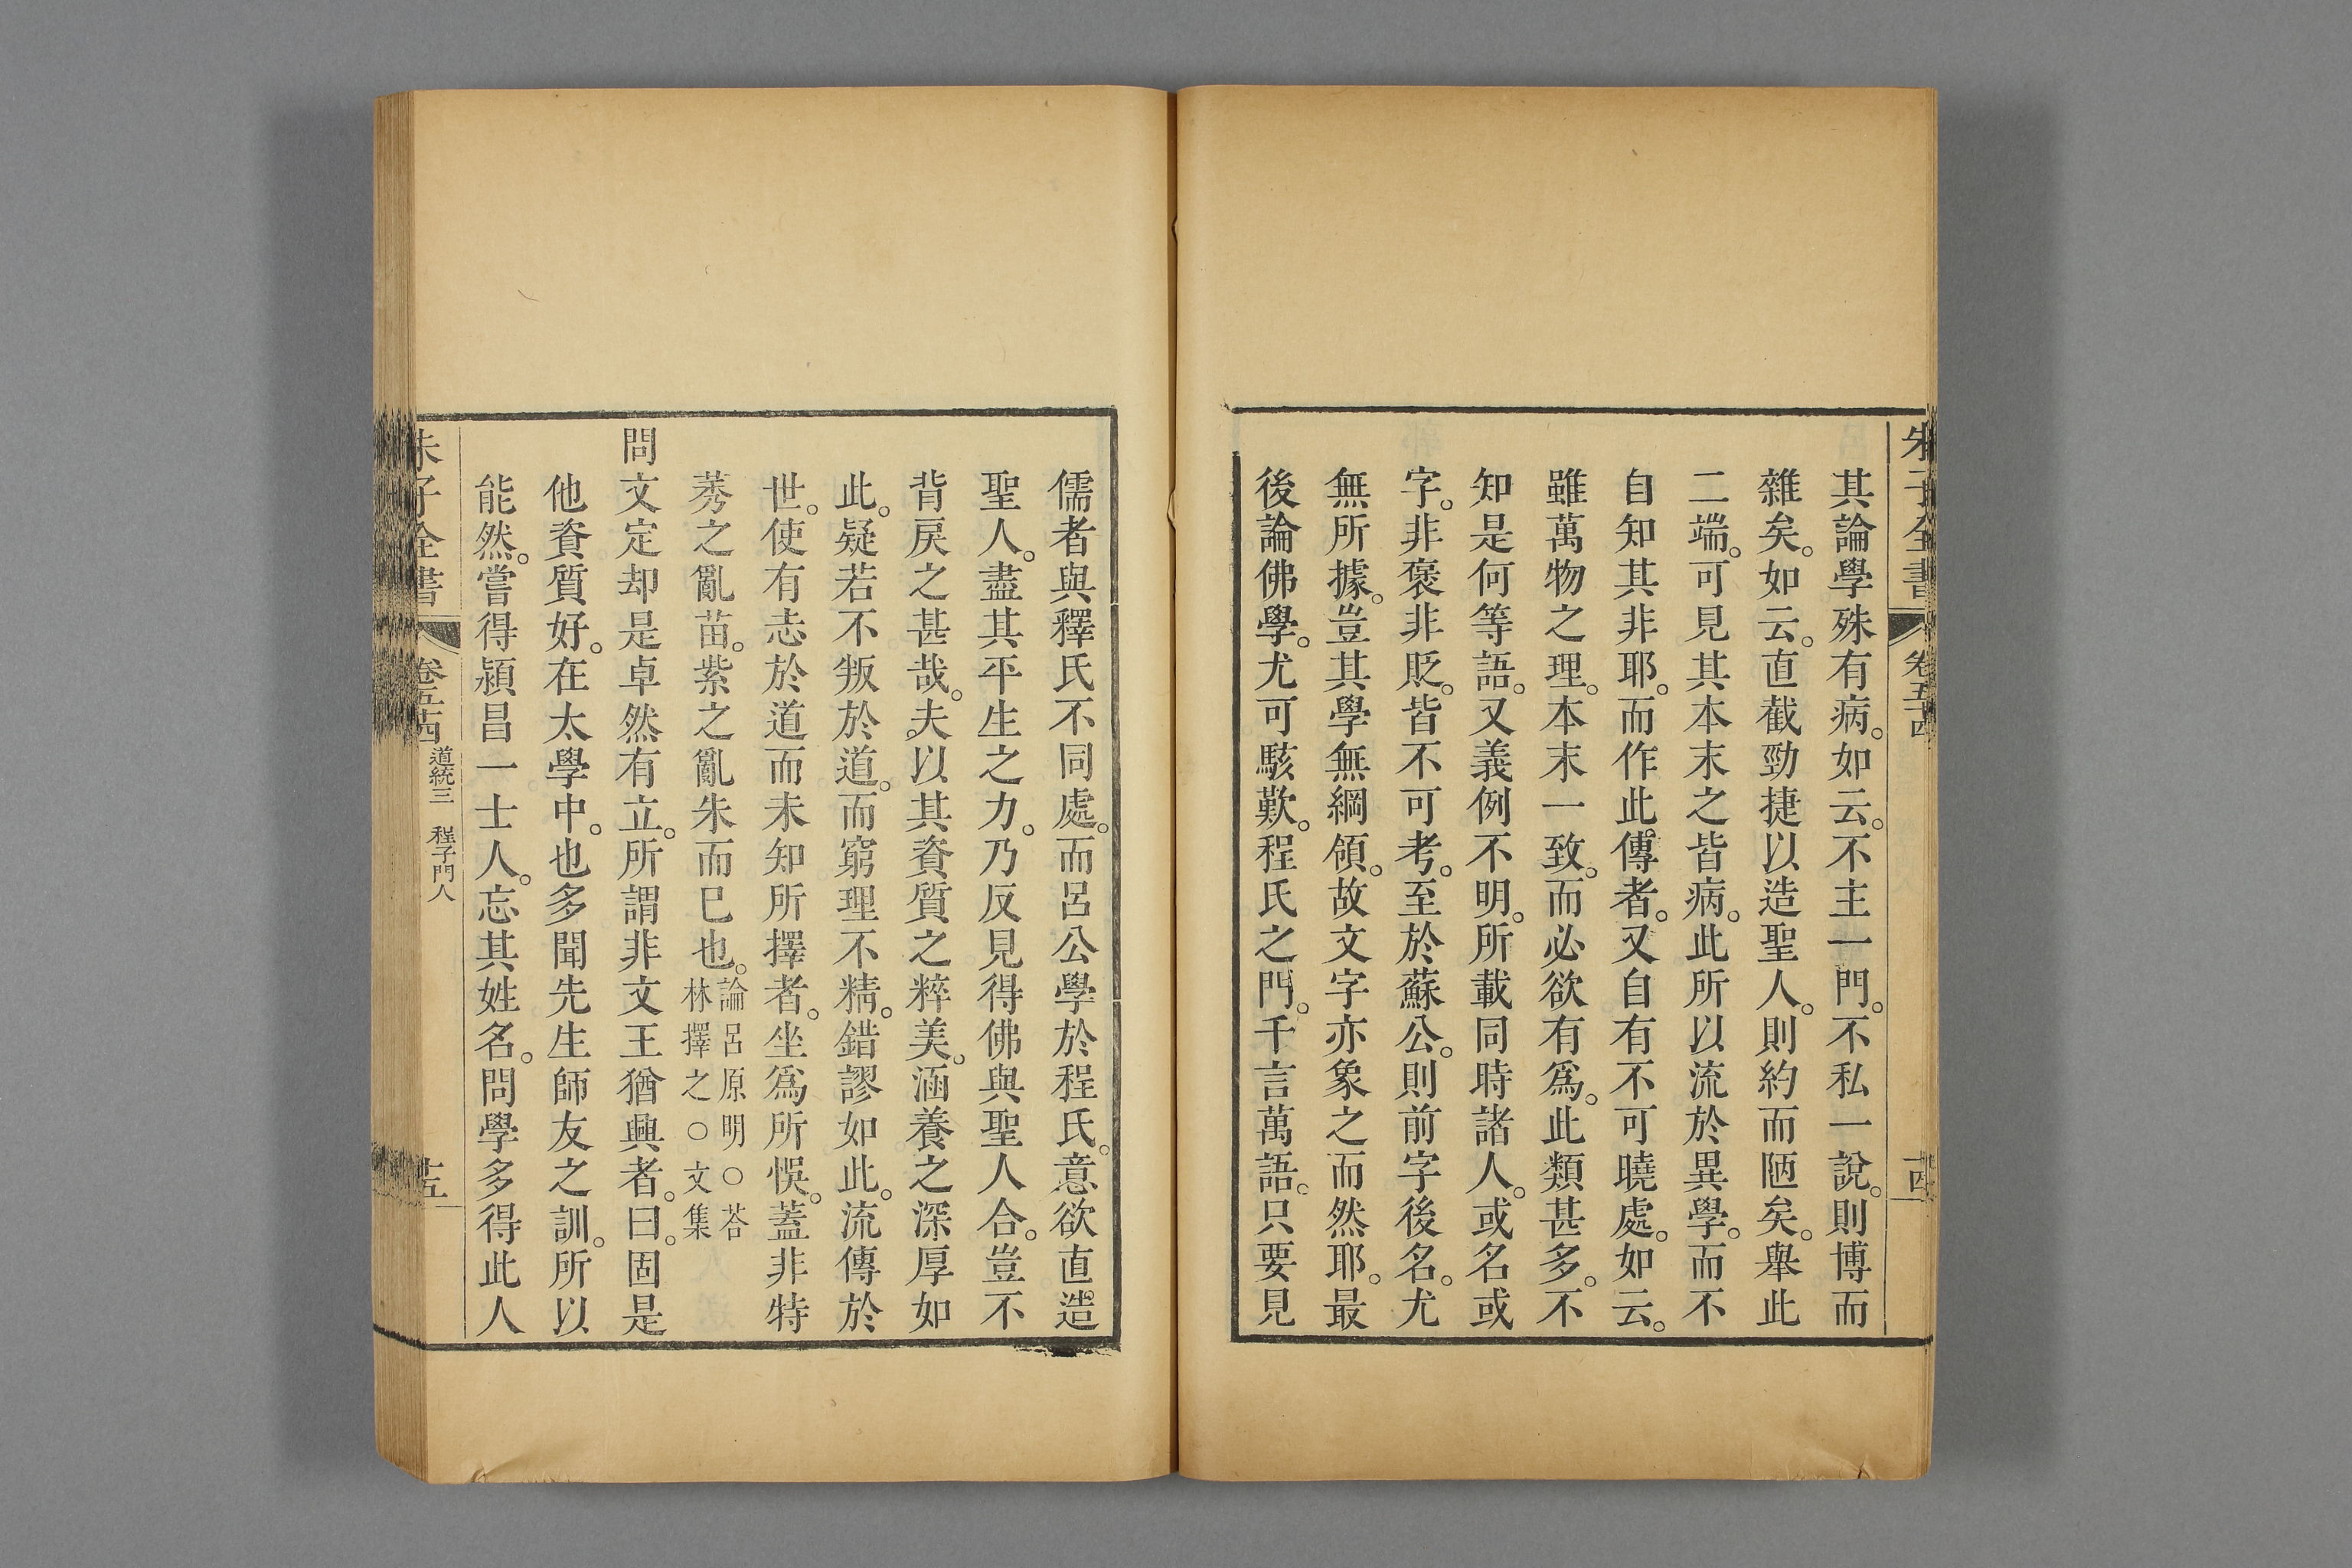 朱子全書 卷五十四 十四
其論學殊有病。如云。不主一門。不私一說。則博而
雜矣。如云。直截勁捷以造聖人。則約而陋矣。舉此
二端。可見其本末之皆病。此所以流於異學。而不
自知其非耶。而作此傳者。又自有不可曉處。如云。
雖萬物之理。本末一致。而必欲有爲。此類甚多。不
知是何等語。又義例不明。所載同時諸人。或名或
字。非褒非貶。皆不可考。至於蘇公。則前字後名。尤
無所據。豈其學無綱領。故文字亦象之而然耶。最
後論佛學。尤可駭歎。程氏之門。千言萬語。只要見
儒者與釋氏不同處。而呂公學於程氏。意欲直造
聖人。盡其平生之力。乃反見得佛與聖人合。豈不
背戾之甚哉。夫以其資質之粹美。涵養之深厚如
此。疑若不叛於道。而窮理不精。錯謬如此。流傳於
世。使有志於道而未知所擇者。坐爲所悞。蓋非特
莠之亂苗。紫之亂朱而已也。論呂原明○荅
林擇之○文集
問文定却是卓然有立。所謂非文王猶興者。曰。固是
他資質好。在太學中。也多聞先生師友之訓。所以
能然。嘗得潁昌一士人。忘其姓名。問學多得此人
朱子全書 卷五十四 道統三 程子門人 十五